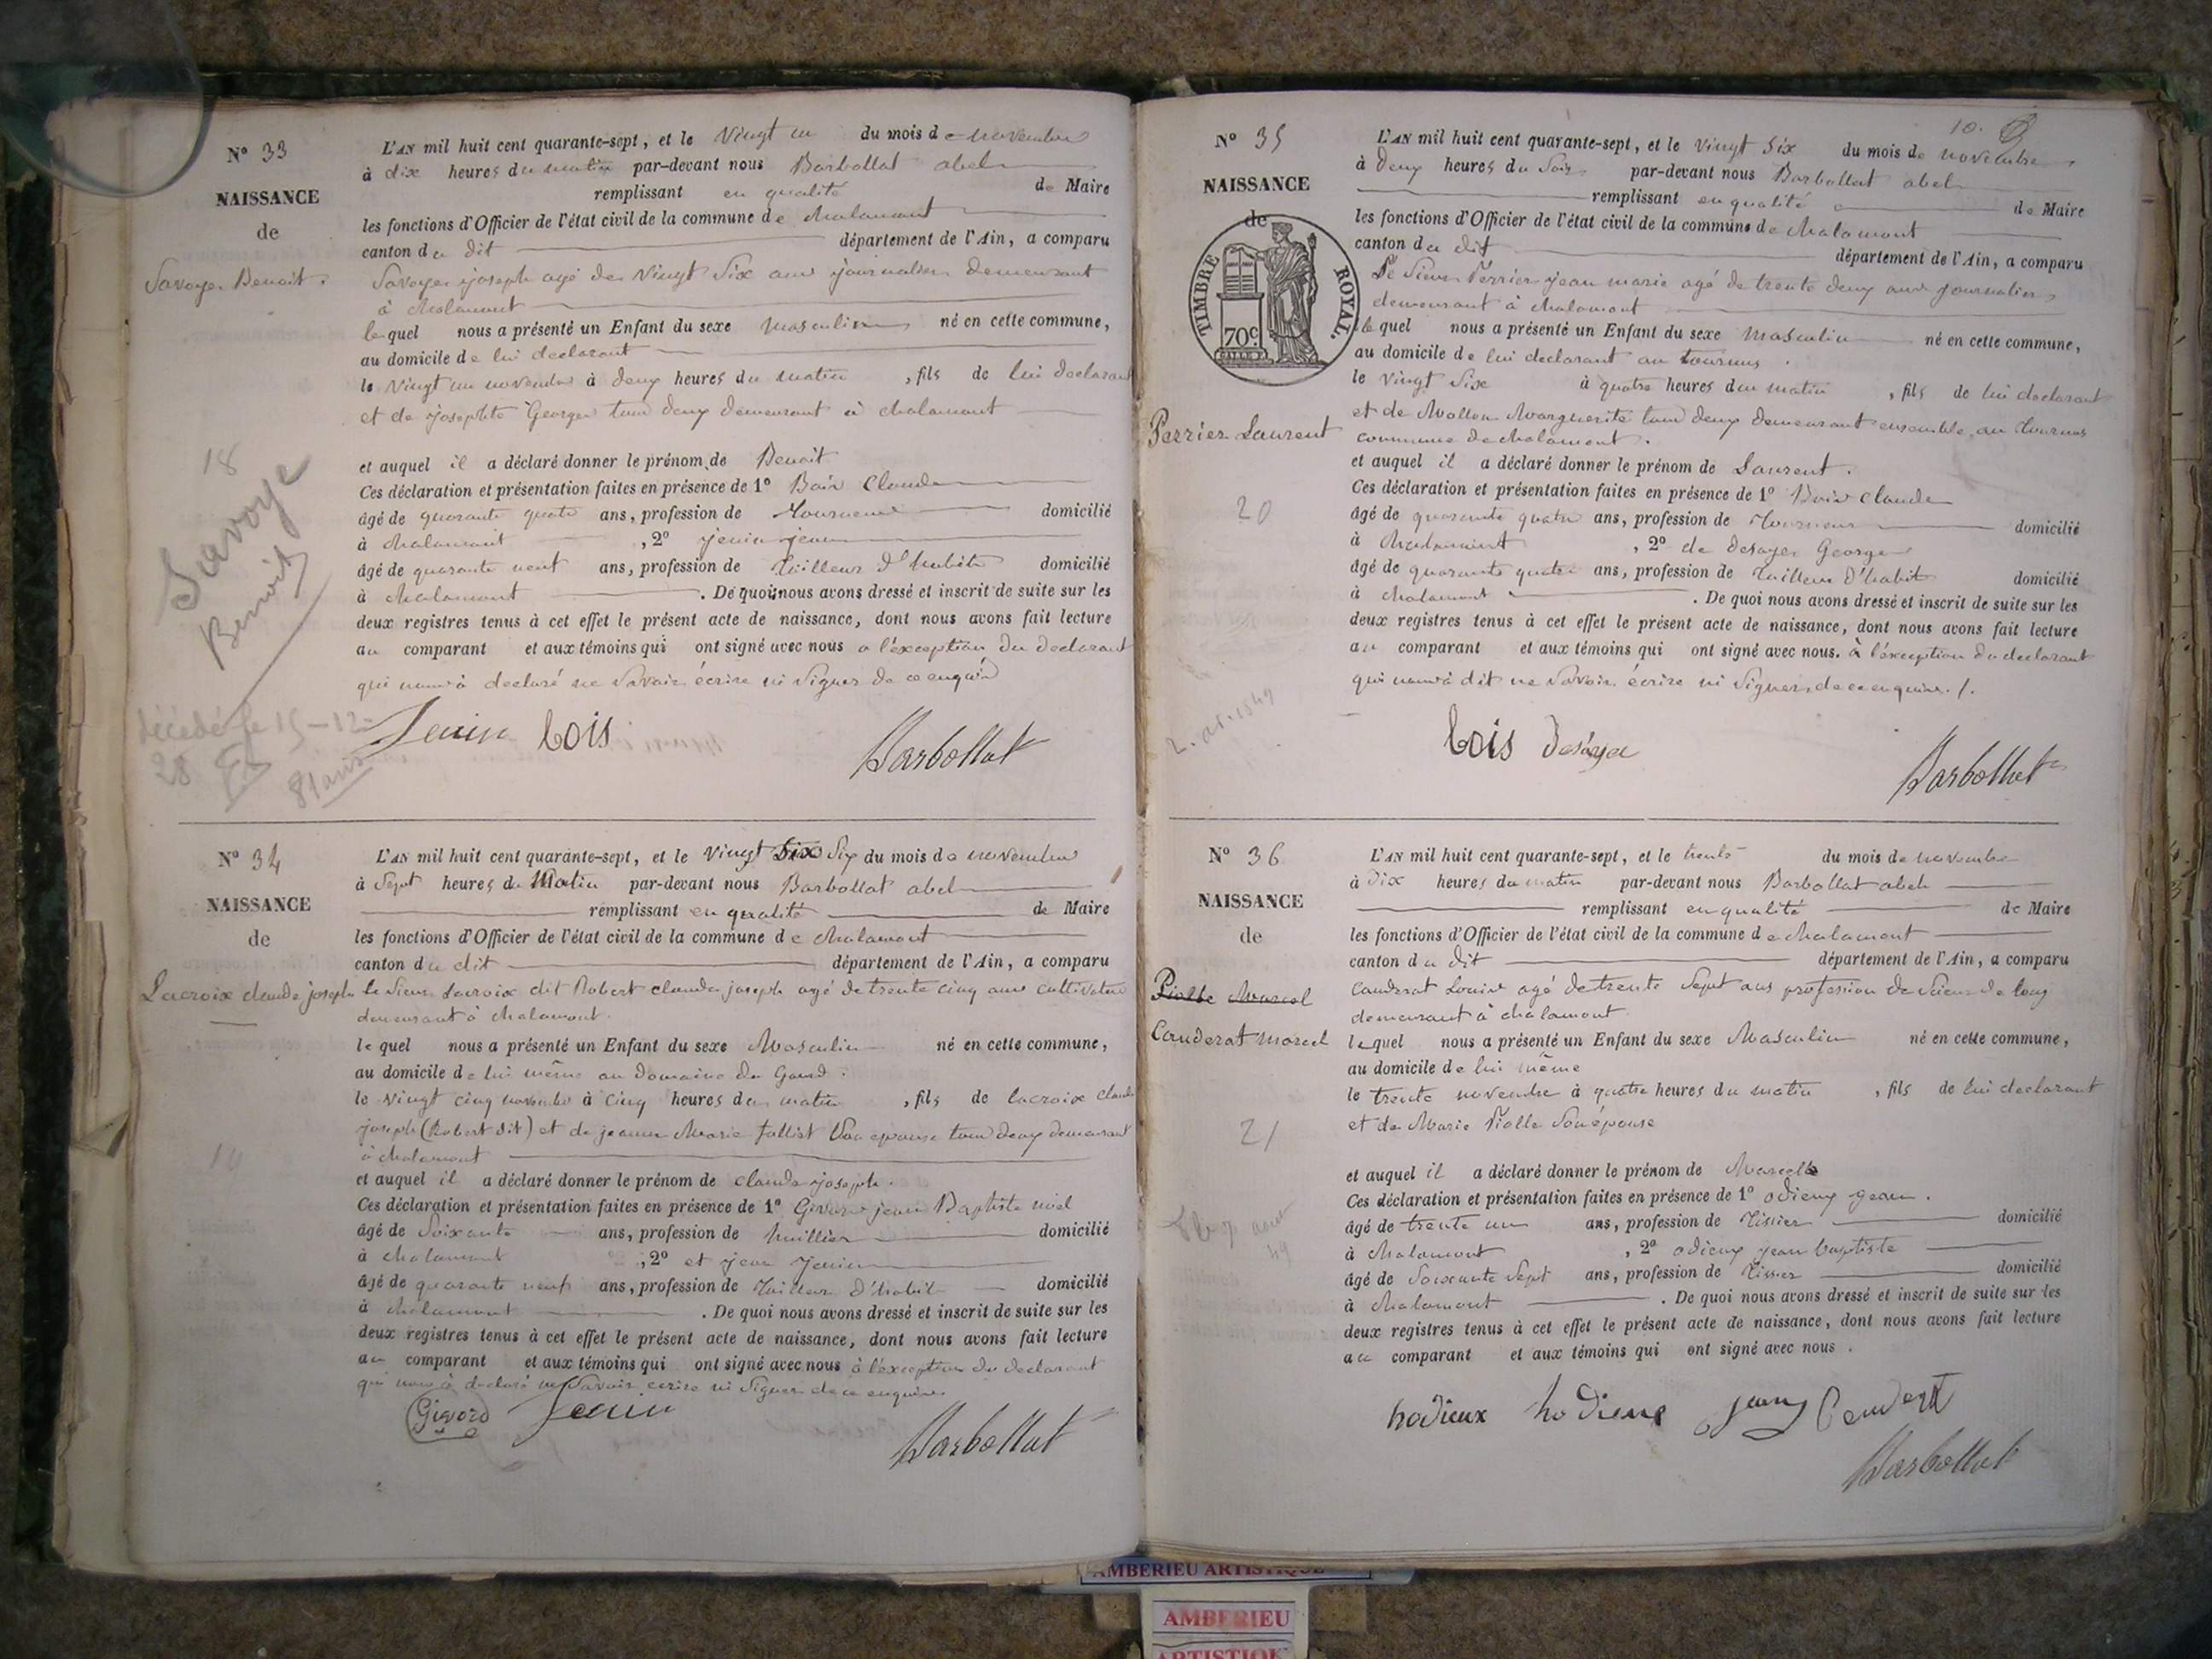 N° 33
NAISSANCE
de
Savoye Benoit.
18
Savoye
Benoit
décédé le 15-12-
28
81 ans
L'AN mil huit cent quarante-sept, et le Vingt un du mois de novembre
à dix heures du matin par-devant nous Barbollat abel
remplissant en qualité de Maire
les fonctions d'Officier de l'état civil de la commune de chalamont
canton du dit département de l'Ain, a comparu
Savoye joseph agé de Vingt Six ans journalier demeurant
à chalamont
lequel nous a présenté un Enfant du sexe masculin né en cette commune,
au domicile de lui declarant
le Vingt un novembre à deux heures du matin, fils de lui declarant
et de josephte George tous deux demeurant à chalamont
et auquel il a déclaré donner le prénom de Benoit
Ces déclaration et présentation faites en présence de 1° Bois Claude
âgé de quarante quatre ans, profession de tourneur domicilié
à chalamont, 2° jenin jean
âgé de quarante neuf ans, profession de tailleur d'habits domicilié
à chalamont. De quoi nous avons dressé et inscrit de suite sur les
deux registres tenus à cet effet le présent acte de naissance, dont nous avons fait lecture
au comparant et aux témoins qui ont signé avec nous a l'exception du declarant
qui nous à declaré ne Savoir écrire ni Signer de ce enquis
Jenin bois
Barbollat
N° 34
NAISSANCE
de
Lacroix claude joseph
19
L'AN mil huit cent quarante-sept, et le Vingt Six du mois de novembre
à Sept heures du Matin par-devant nous Barbollat abel
remplissant en qualité de Maire
les fonctions d'Officier de l'état civil de la commune de chalamont
canton du dit département de l'Ain, a comparu
le Sieur Lacroix dit Robert claude joseph agé de trente cinq ans cultivateur
demeurant à chalamont
lequel nous a présenté un Enfant du sexe Masculin né en cette commune,
au domicile de lui même au Domaine du
le Vingt cinq novembre à cinq heures du matin, fils de lacroix claude
joseph (Robert dit) et de jeanne Marie Son epouse tous deux demeurant
à chalamont
et auquel il a déclaré donner le prénom de claude joseph.
Ces déclaration et présentation faites en présence de 1° Givord jean Baptiste noel
âgé de Soixante ans, profession de huillier domicilié
à chalamont, 2° et jean jenin
âgé de quarante neuf ans, profession de Tailleur d'habit domicilié
à chalamont. De quoi nous avons dressé et inscrit de suite sur les
deux registres tenus à cet effet le présent acte de naissance, dont nous avons fait lecture
au comparant et aux témoins qui ont signé avec nous à l'exception du declarant
qui nous à declaré ne Savoir ecrire ni Signer de ce enquis
Givord Jenin
Barbollat
10.
N° 35
NAISSANCE
de
TIMBRE ROYAL.
70c
Perrier Laurent
20
L'AN mil huit cent quarante-sept, et le Vingt Six du mois de novembre
à deux heures du Soir par-devant nous Barbollat abel
remplissant en qualité de Maire
les fonctions d'Officier de l'état civil de la commune de chalamont
canton du dit département de l'Ain, a comparu
Le Sieur Perrier jean marie agé de trente deux ans journalier
demeurant à chalamont
lequel nous a présenté un Enfant du sexe Masculin né en cette commune,
au domicile de lui declarant au tournus.
le Vingt Six à quatre heures du matin, fils de lui declarant
et de Mallon Marguerite tous deux demeurant ensemble, au tournus
commune de chalamont.
et auquel il a déclaré donner le prénom de Laurent.
Ces déclaration et présentation faites en présence de 1° Bois claude
âgé de quarante quatre ans, profession de tourneur domicilié
à chalamont, 2° de Desayer George
âgé de quarante quatre ans, profession de Tailleur d'habit domicilié
à chalamont. De quoi nous avons dressé et inscrit de suite sur les
deux registres tenus à cet effet le présent acte de naissance, dont nous avons fait lecture
au comparant et aux témoins qui ont signé avec nous. à l'exception du declarant
qui nous à dit ne Savoir écrire ni Signer de ce enquis./.
bois
Barbollat
N° 36
NAISSANCE
de
Piolle Marcel
Cauderat marcel
21
L'AN mil huit cent quarante-sept, et le trente du mois de novembre
à Dix heures du matin par-devant nous Barbollat abel
remplissant en qualité de Maire
les fonctions d'Officier de l'état civil de la commune de chalamont
canton du dit département de l'Ain, a comparu
Cauderat Louis agé de trente Sept ans profession de Scieur de long
demeurant à chalamont
lequel nous a présenté un Enfant du sexe Masculin né en cette commune,
au domicile de lui même
le trente novembre à quatre heures du matin, fils de lui declarant
et de Marie Piolle Son épouse
et auquel il a déclaré donner le prénom de Marcel
Ces déclaration et présentation faites en présence de 1° odieux jean.
âgé de trente un ans, profession de Tissier domicilié
à chalamont, 2° odieux jean baptiste
âgé de Soixante Sept ans, profession de Tissier domicilié
à chalamont. De quoi nous avons dressé et inscrit de suite sur les
deux registres tenus à cet effet le présent acte de naissance, dont nous avons fait lecture
au comparant et aux témoins qui ont signé avec nous.
hodieux
Barbollat
AMBERIEU ARTISTIQUE
AMBERIEU
ARTISTIQUE